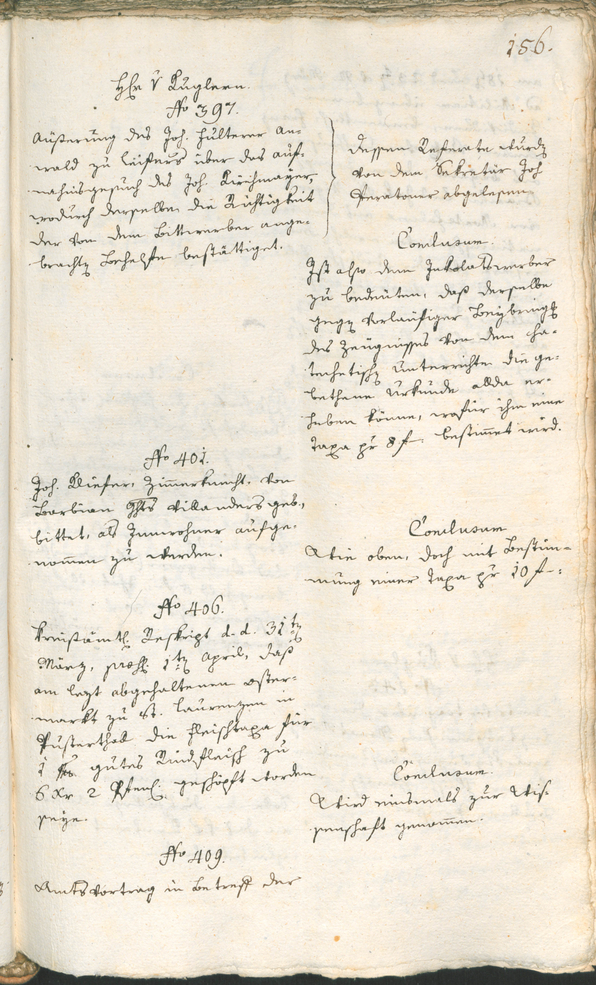 156.
H: v Kuglern.
No 397.
Äußerung des Joh. Hulterer An-
wald zu Layen über das auf-
nahmsgesuch des Joh. Kirchmayer,
wodurch derselbe die Richtigkeit
der von dem Bittwerber ange-
brachten Behelfe bestättiget.
dessen Referate wurde
von dem Sekretär Joh
Peratoner abgelesen
Conclusum.
Ist also dem Inkolatswerber
zu bedeuten, daß derselbe
gegen vorläufiger Beybringung
des Zeugnisses von dem Ka-
techetischen Unterrichte die ge-
bethene Urkunde allda er-
heben könne, wofür ihm eine
Taxa pr 8 f. bestimmet wird.
No 401.
Joh. Kiefer, Zimmerknecht, von
Barbian Ghts Villanders geb.,
bittet, als Innwohner aufge-
nommen zu werden.
Conclusum
Wie oben, doch mit Bestim-
mung einer Taxa pr 10 f.
No 406.
Kreisämtl. Reskript d. d. 31ten
März, 1ten April, daß
am lezt abgehaltenen Oster-
markt zu St. Laurenzen in
Pusterthal die Fleischtaxa für
1 gutes Rindfleisch zu
6 Xr 2 Pfen. geschöpft worden
seye.
Conclusum.
Wird einsmals zur Wis-
senschaft genommen.
No 409.
Amtsvortrag in Betreff der